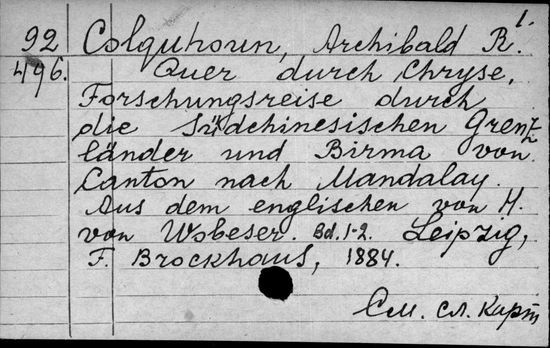 1.
92 Colquhoun, Archibald R.
496. Quer durch Chryse,
Forschungsreise durch
die Südchinesischen Grenz-
länder und Birma von
Canton nach Mandalay.
Aus dem englischen von H.
von Wobeser. Bd. 1-2. Leipzig,
F. Brockhaus, 1884.
См. сл. карт